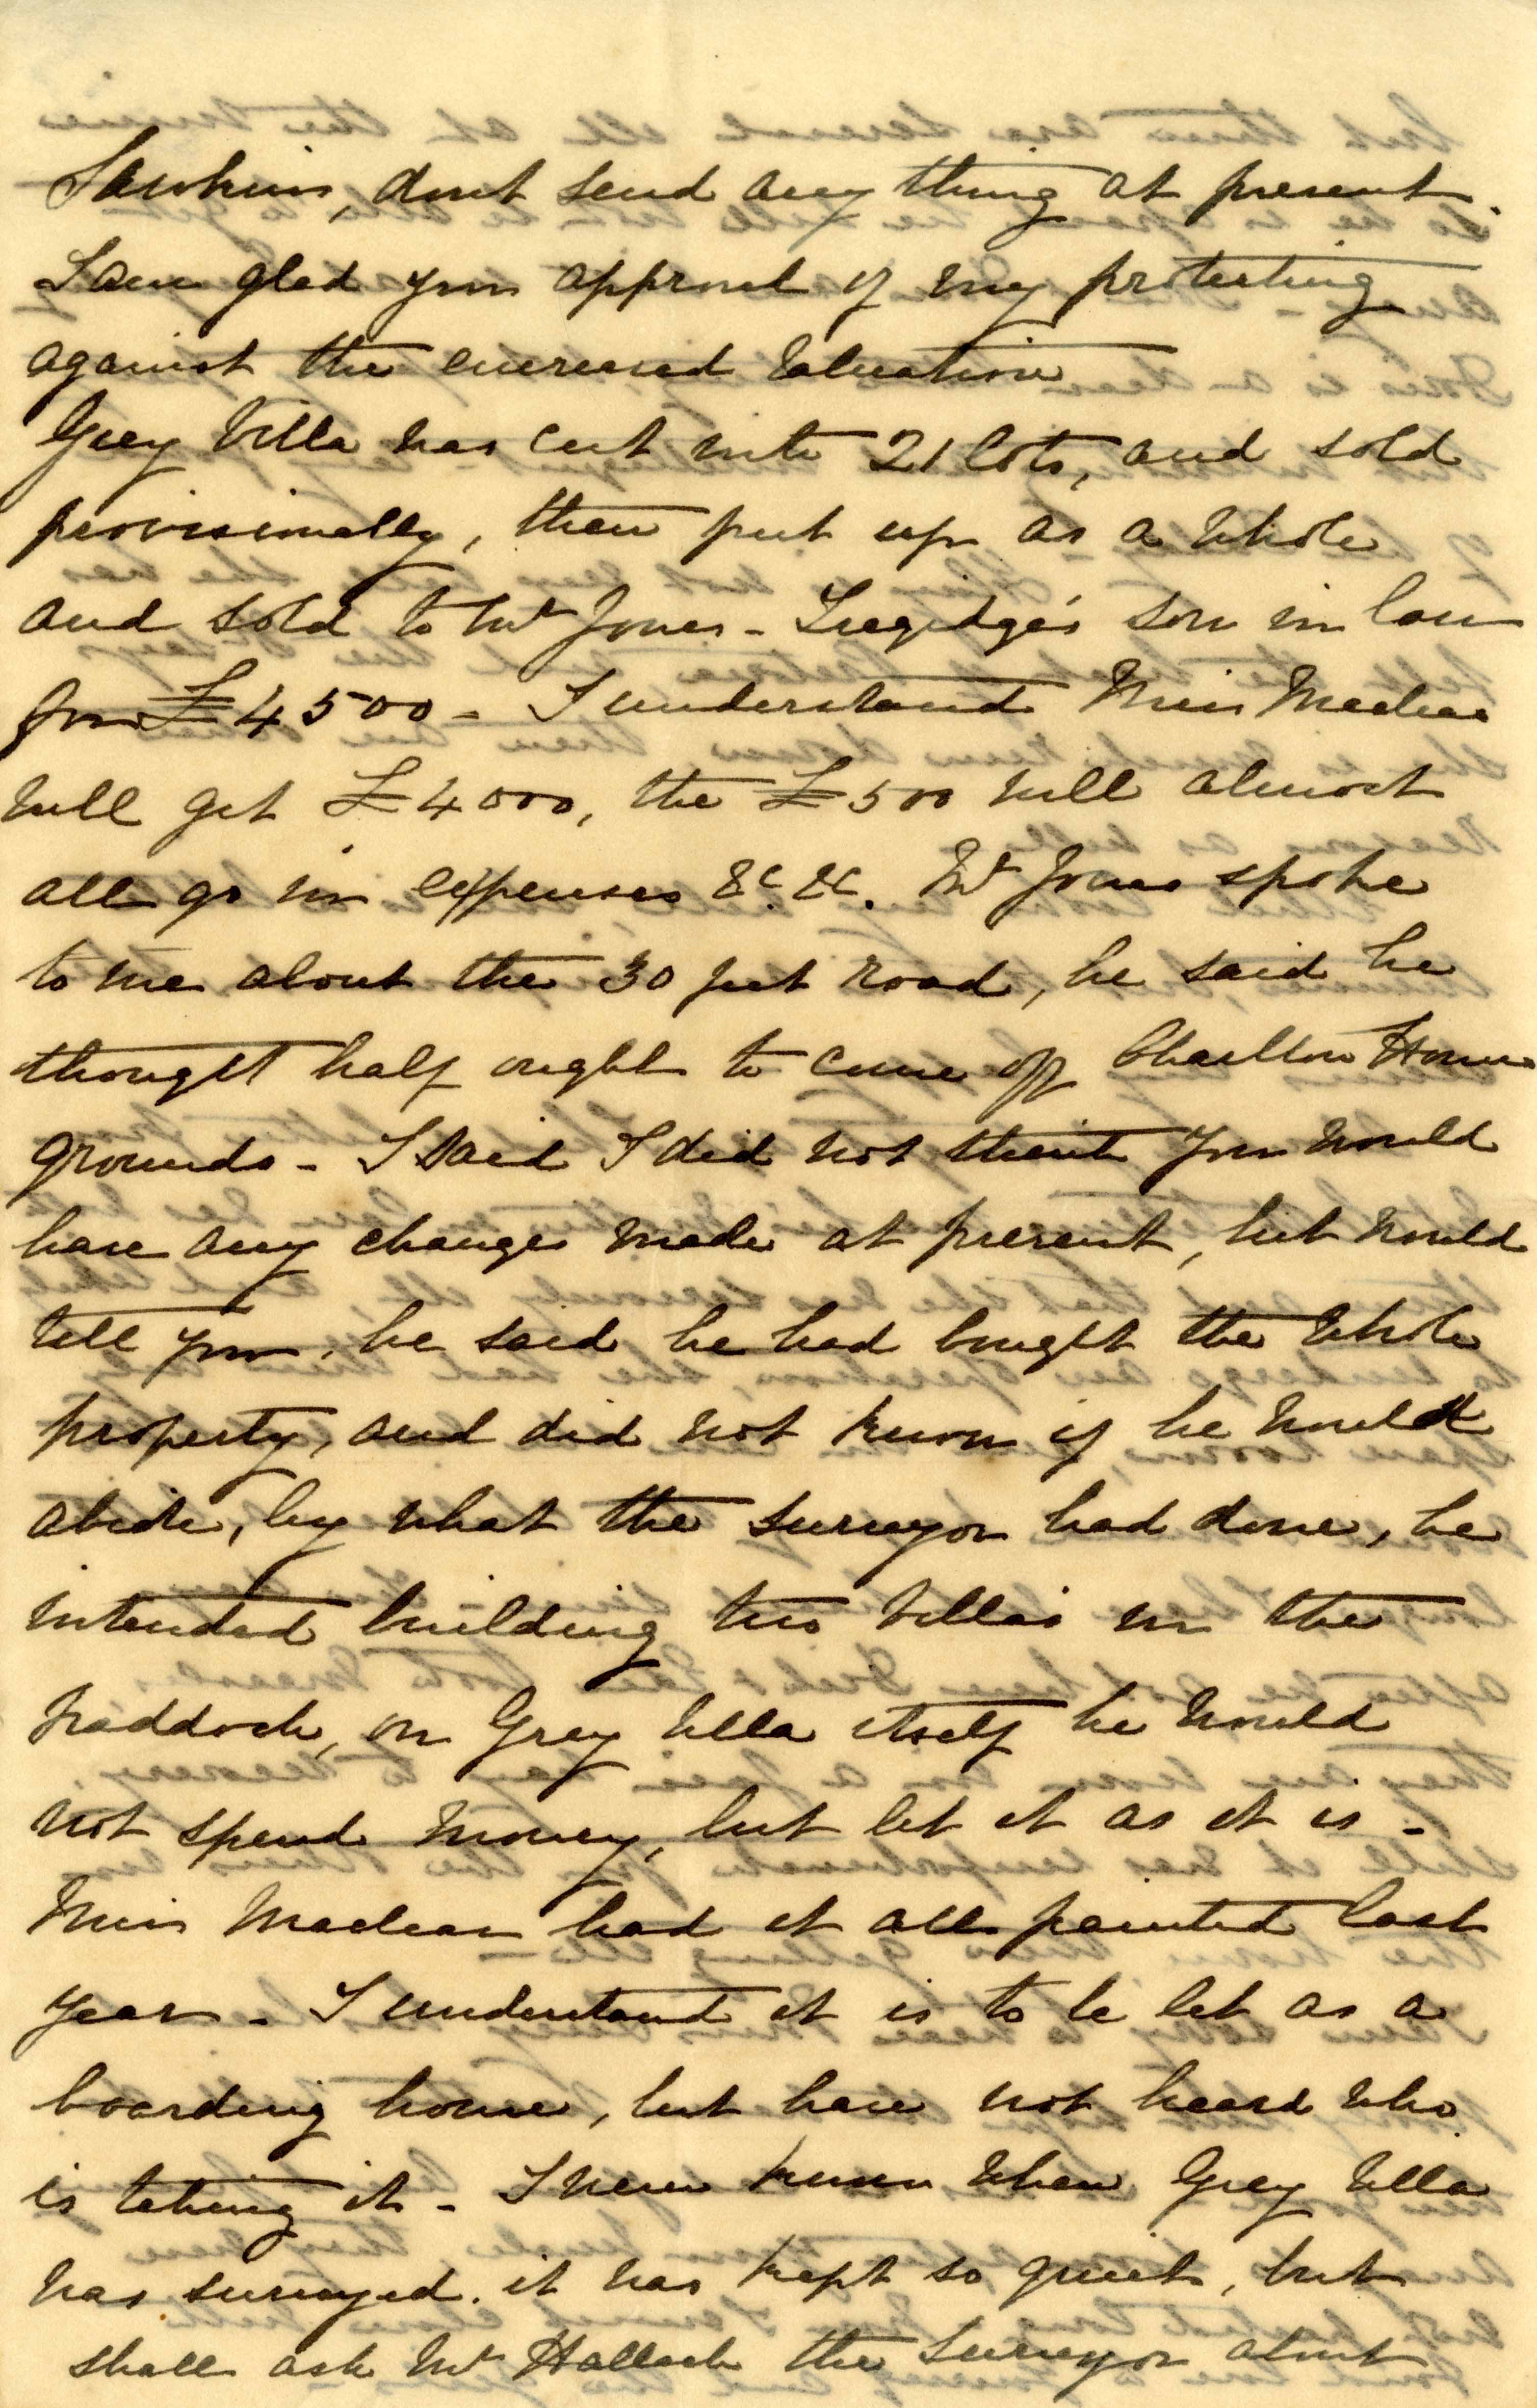 dont send any thing at present.
I am glad you approve of my protesting
against the encreased Valuation
Grey Villa was cut into 21 lots, and sold
provisionally, then put up as a whole
and sold to Mr Jones - son in law
for £4500 - I understand Miss Maclean
will get £4000, the £500 will almost
all go in expenses &c. &c. Mr Jones spoke
to me about the 30 feet road, he said he
thought half ought to come off Charlton House
grounds - I said I did not think you would
have any changes made at present, but would
tell you, he said he had bought the whole
property, and did not know if he would
abide, by what the surveyor had done, he
intended building two Villas in the
Paddock, on Grey Villa itself he would
not spend money, but let it as it is -
Miss Maclean had it all painted last
year - I understand it is to be let as a
boarding house, but have not heard who
is taking it - I never knew when Grey Villa
was surveyed. it was kept so quiet, but
shall ask Mr Hallack the Surveyor about